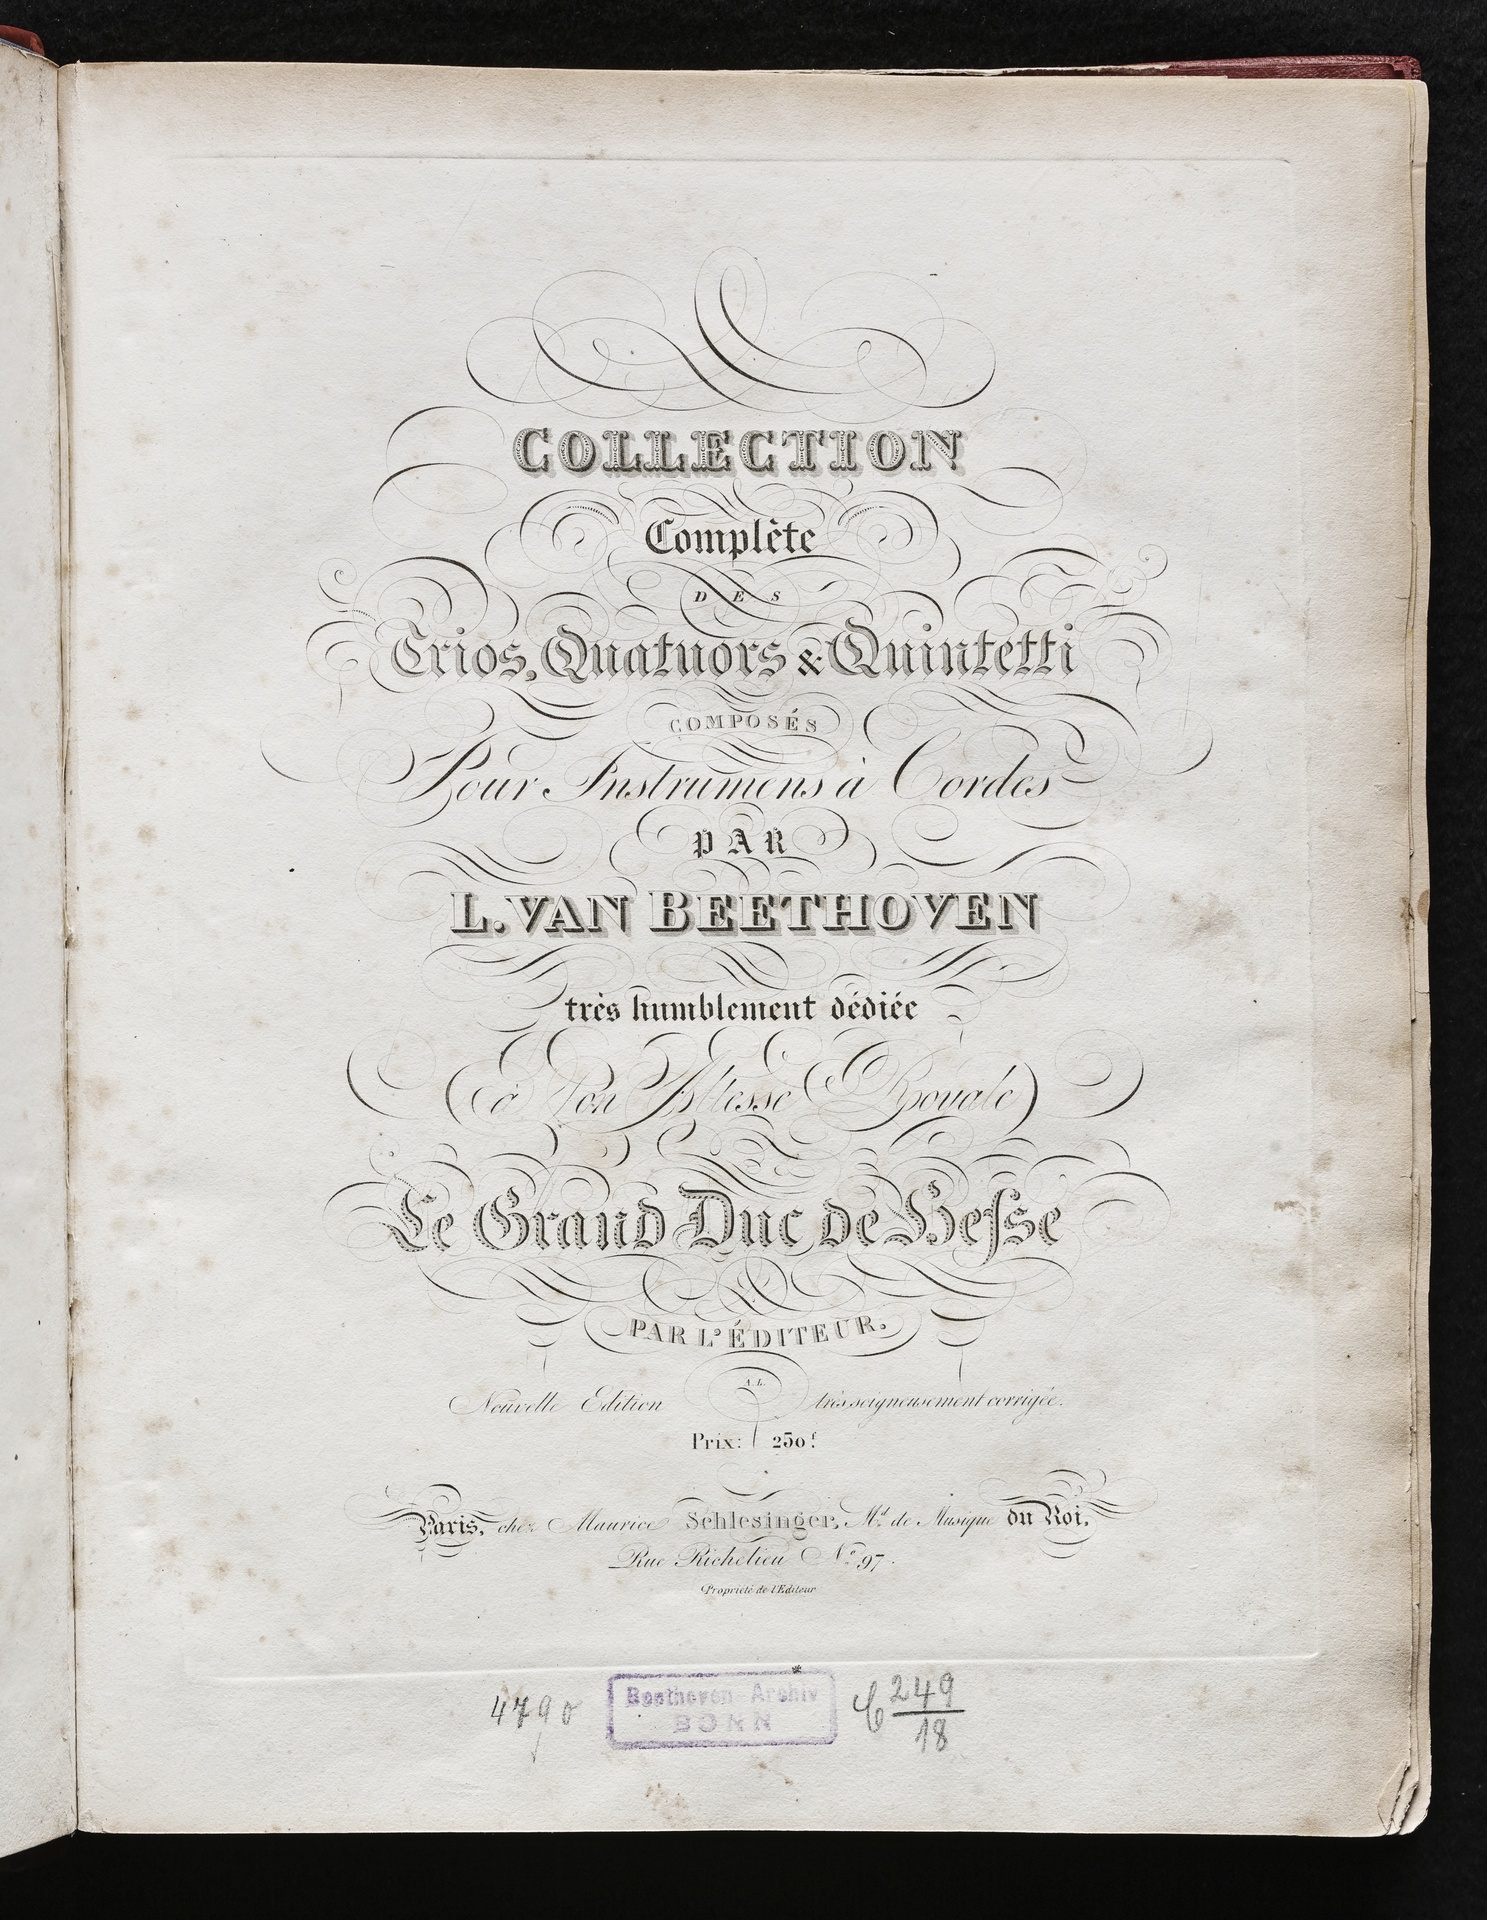 COLLECTION
Complète
DES
Trios, Quatuors & Quintetti
COMPOSÉS
Pour Instrumens à Cordes
PAR
L. VAN BEETHOVEN
très humblement dédiée
à Son Altesse Royale
Le Grand Duc de Hesse
PAR L'ÉDITEUR.
A.L.
Nouvelle Edition très soigneusement corrigée.
Prix: 250f.
Paris, chez Maurice Schlesinger, Md. de Musique du Roi,
Rue Richelieu No. 97.
Propriété de l'Editeur
Beethoven-Archiv
BONN
C 249
18